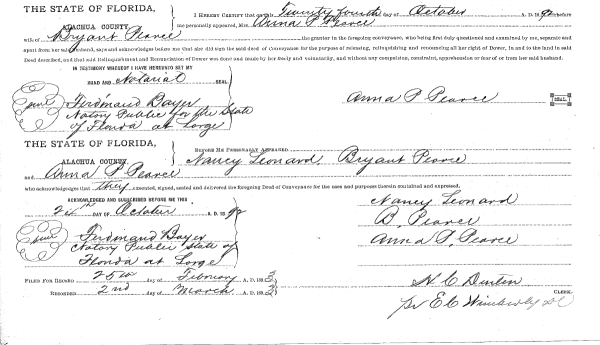 THE STATE OF FLORIDA,
ALACHUA COUNTY.
I HEREBY CERTIFY that on this Twenty fourth day of October A. D. 1892 before
me personally appeared, Mrs. Anna P. Pearce
wife of Bryant Pearce the grantor in the foregoing conveyance, who being first duly questioned and examined by me, separate and
apart from her said husband, says and acknowledges before me that she did sign the said deed of Conveyance for the purpose of releasing, relinquishing and renouncing all her right of Dower, in and to the land in said
Deed described, and that said Relinquishment and Renunciation of Dower was done and made by her freely and voluntarily, and without any compulsion, constraint, apprehension or fear of or from her said husband.
IN TESTIMONY WHEREOF I HAVE HEREUNTO SET MY
HAND AND Notarial SEAL
Ferdinand Bayer
Notary Public for the State
of Florida at Large
Anna P. Pearce
SEAL
THE STATE OF FLORIDA,
ALACHUA COUNTY.
BEFORE ME PERSONALLY APPEARED Nancy Leonard, Bryant Pearce
and Anna P. Pearce
who acknowledges that they executed, signed, sealed and delivered the foregoing Deed of Conveyance for the uses and purposes therein contained and expressed.
ACKNOWLEDGED AND SUBSCRIBED BEFORE ME THIS
24th DAY OF October A. D. 1892
Ferdinand Bayer
Notary Public State of
Florida at Large
Nancy Leonard
B. Pearce
Anna P. Pearce
FILED FOR RECORD 25th day of February A. D. 1893
RECORDED 2nd day of March A. D. 1893
H. C. Denton
CLERK.
pr E C